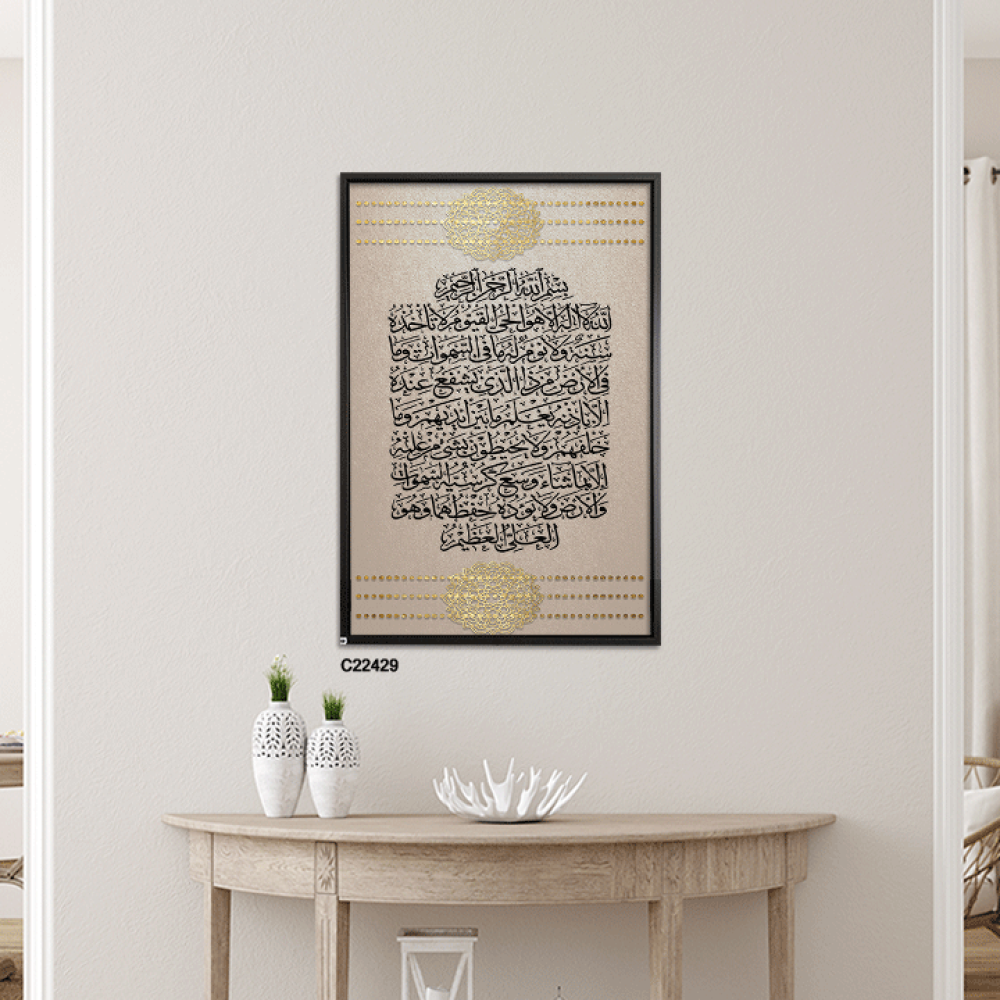 بِسْمِ اللَّهِ الرَّحْمَنِ الرَّحِيمِ
اللَّهُ لَا إِلَهَ إِلَّا هُوَ الْحَيُّ الْقَيُّومُ لَا تَأْخُذُهُ
سِنَةٌ وَلَا نَوْمٌ لَهُ مَا فِي السَّمَوَاتِ وَمَا
فِي الْأَرْضِ مَنْ ذَا الَّذِي يَشْفَعُ عِنْدَهُ
إِلَّا بِإِذْنِهِ يَعْلَمُ مَا بَيْنَ أَيْدِيهِمْ وَمَا
خَلْفَهُمْ وَلَا يُحِيطُونَ بِشَيْءٍ مِنْ عِلْمِهِ
إِلَّا بِمَا شَاءَ وَسِعَ كُرْسِيُّهُ السَّمَوَاتِ
وَالْأَرْضَ وَلَا يَئُودُهُ حِفْظُهُمَا وَهُوَ
الْعَلِيُّ الْعَظِيمُ
C22429